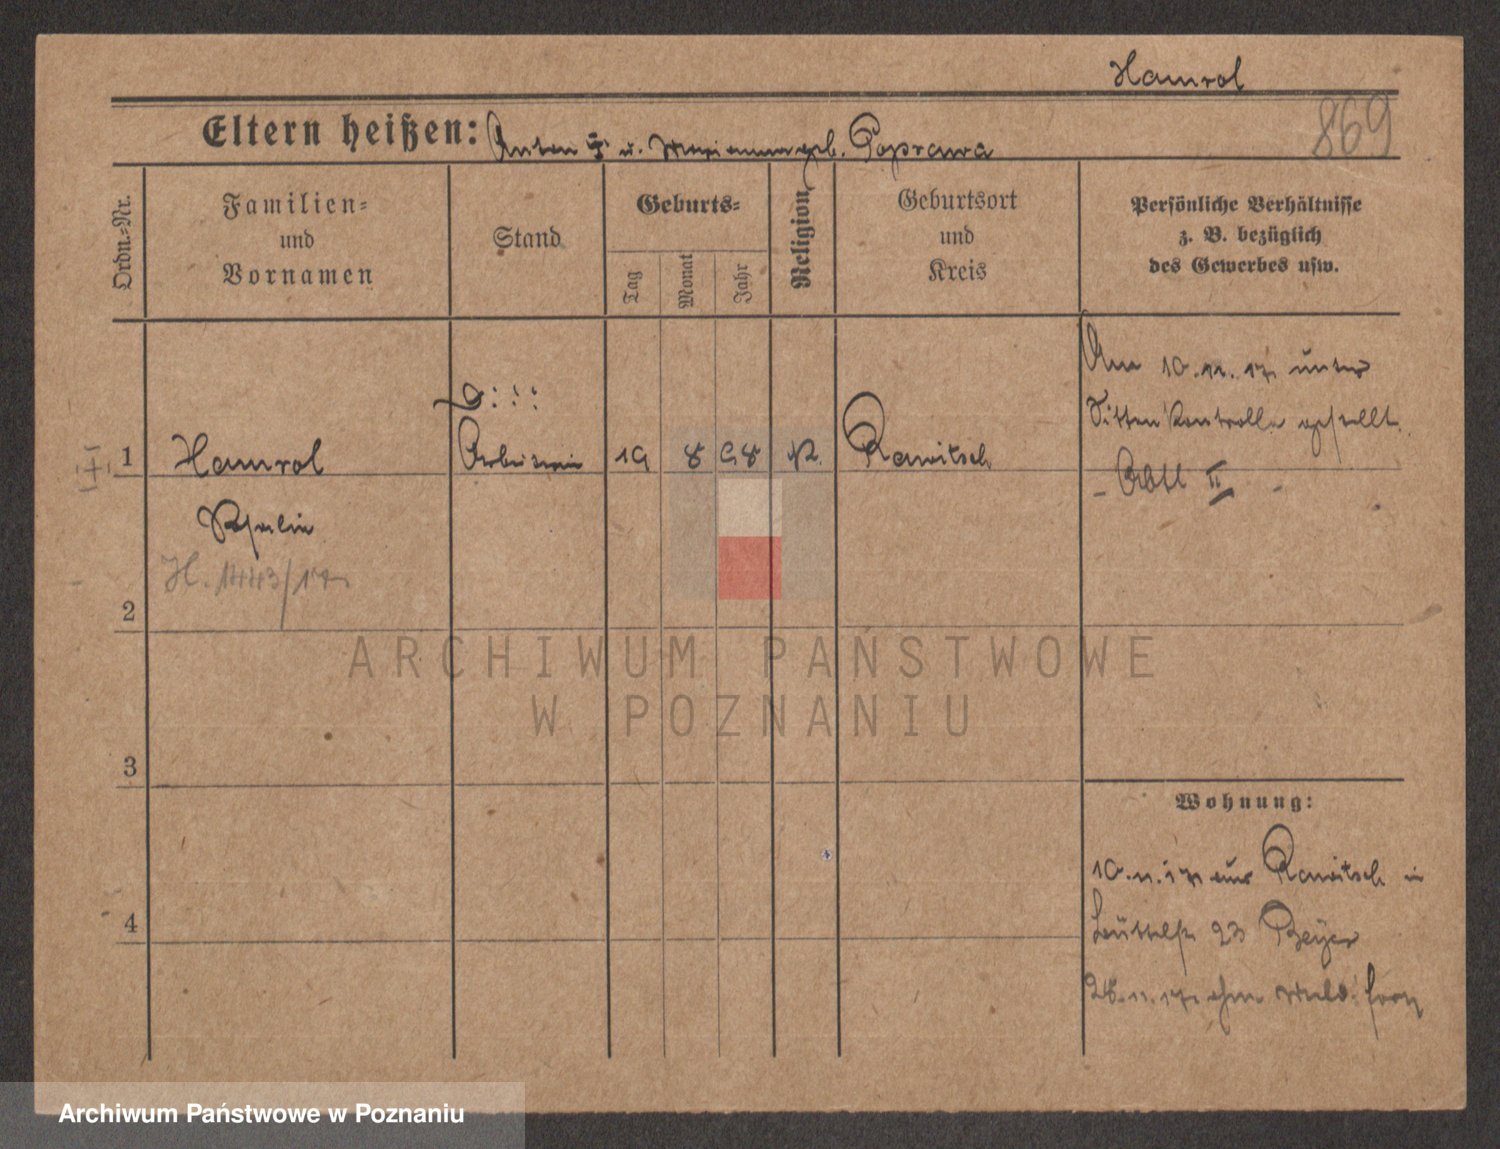 Hamrol
869
Eltern heißen: Anton † u. Marianna geb. Poprawa
Ordn.-Nr.
Familien-
und
Vornamen
Stand
Geburts-
Tag
Monat
Jahr
Religion
Geburtsort
und
Kreis
Persönliche Verhältnisse
z. B. bezüglich
des Gewerbes usw.
Am 10.11.17 unter
Sittenkontrolle gestellt.
- Abtl II -
1 Hamrol Arbeiterin 19 8 98 K. Rawitsch
Rosalie
H. 1443/17
2
3
4
Wohnung:
10.11.17 aus Rawitsch in
23 Beyer
28.11.17 ohne Meld. fort
ARCHIWUM PAŃSTWOWE
W POZNANIU
Archiwum Państwowe w Poznaniu